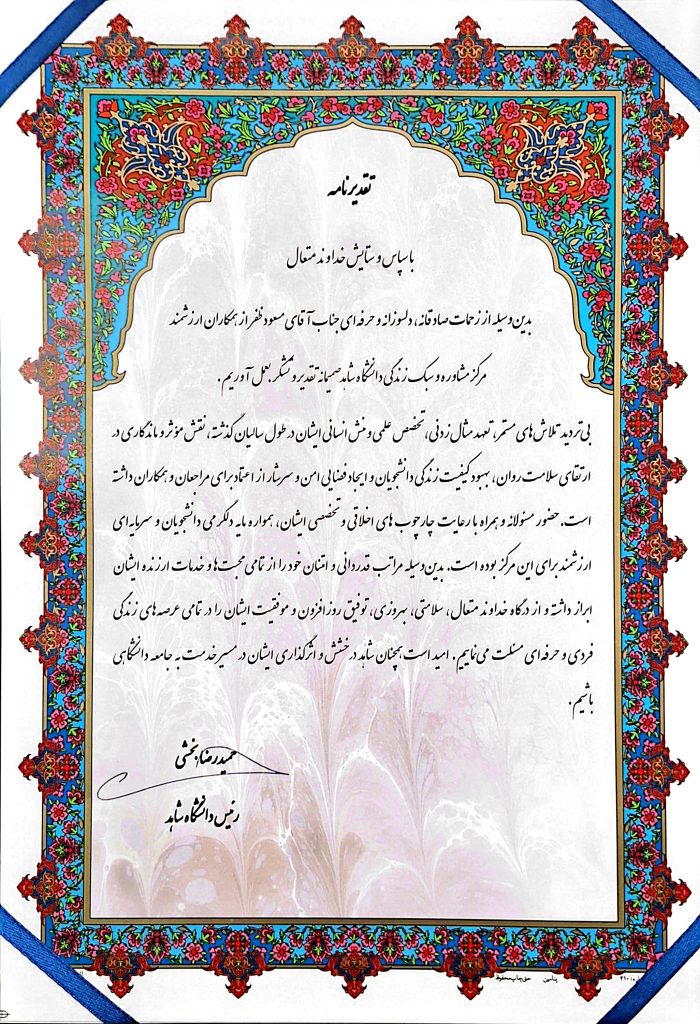 تقدیرنامه
با سپاس و ستایش خداوند متعال
بدین‌وسیله از زحمات صادقانه، دلسوزانه و حرفه‌ای جناب آقای مسعود ظفر از همکاران ارزشمند
مرکز مشاوره و سبک زندگی دانشگاه شاهد صمیمانه تقدیر و تشکر بعمل آوریم.
بی‌تردید تلاش‌های مستمر، تعهد مثال زدنی، تخصص علمی و منش انسانی ایشان در طول سالیان گذشته، نقش مؤثر و ماندگاری در
ارتقای سلامت روان، بهبود کیفیت زندگی دانشجویان و ایجاد فضایی امن و سرشار از اعتماد برای مراجعان و همکاران داشته
است. حضور مسئولانه و همراه با رعایت چارچوب های اخلاقی و تخصصی ایشان، همواره مایه دلگرمی دانشجویان و سرمایه‌ای
ارزشمند برای این مرکز بوده است. بدین‌وسیله مراتب قدردانی و امتنان خود را از تمامی محبت‌ها و خدمات ارزنده ایشان
ابراز داشته و از درگاه خداوند متعال، سلامتی، بهروزی، توفیق روزافزون و موفقیت ایشان را در تمامی عرصه‌های زندگی
فردی و حرفه‌ای مسئلت می‌نماییم. امید است همچنان شاهد درخشش و اثرگذاری ایشان در مسیر خدمت به جامعه دانشگاهی
باشیم.
حمیدرضا بخشی
رئیس دانشگاه شاهد
حق چاپ محفوظ